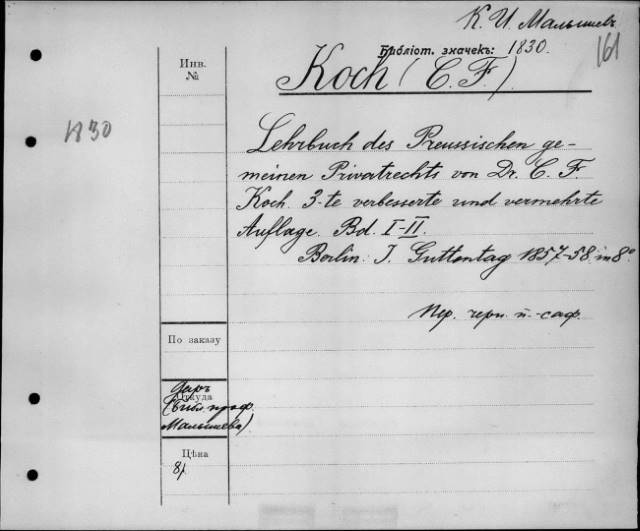 К. И. Малышевъ
161
Библіот. значекъ: 1830.
Инв.
№
Koch (C. F.)
1830
Lehrbuch des Preussischen ge-
meinen Privatrechts von Dr. C. F.
Koch. 3-te verbesserte und vermehrte
Auflage. Bd. I-II.
Berlin. J. Guttentag 1857-58. in 8°
Пер. черн. п.-саф.
По заказу
Откуда
Даръ
(библ. проф.
Малышева)
Цѣна
8/